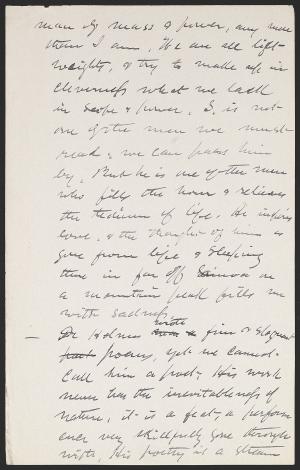 man of mass & power, any more
than I am. We are all light-
weights, & try to make up in
cleverness what we lack
in scope & power. S. is not
one of the men we must
read; we can pass him
by. But he is one of the men
who fills the hour & relieves
the tedium of life. He inspires
love, & the thought of him as
gone from life & sleeping
there in far off Samoa on
a mountain peak fills me
with sadness.
— Dr Holmes wrote fine & eloquent
poems, yet we cannot
call him a poet. His work
never has the inevitableness of
nature, it is a feat, a perform
ance very skilfully gone through
with. His poetry is a stream